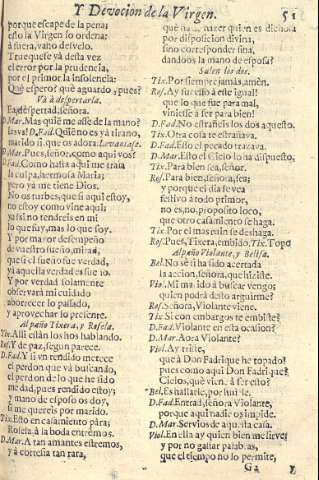 Y Devocion de la Virgen. 51
porque escape de la pena:
esto la Virgen lo ordena:
à fuera, vano desvelo.
Trueque se yà desta vez
el error por la prudencia,
por el primor la insolencia:
Què espero? què aguardo, pues?
Và à despertarla.
Ea, despertad, señora.
D.Mar. Mas què me asse de la mano?
suava! D.Fad. Quien os và tirano,
marido si, que os adora. Levantase.
D.Mar. Pues, señor, como aqui vos?
D.Fad. Como hasta aqui me traia
la culpa, hermosa Maria;
pero yà me tiene Dios.
No os turbes, que si aqui estoy,
no estoy como vine aqui;
y assi no tendreis en mi
lo que fuy, mas lo que soy.
Y por mayor desempeño
de vuestro sueño, mirad,
que si el sueño fue verdad,
yà aquella verdad es sueño.
Y por verdad solamente
observarà mi cuidado
aborrecer lo passado,
y aprovechar lo presente.
Al paño Tixera, y Rosela.
Tix. Alli estàn los dos hablando.
Ros. Y de paz, segun parece.
D.Fad. Y si un rendido merece
el perdon que và buscando,
el perdon de lo que he sido
me dad, pues rendido estoy;
y mano de esposo os doy,
si me quereis por marido.
Tix. Esto en casamiento pàra;
Rosela à la boda entremos.
D.Mar. A tan amantes estremos,
y à cortesia tan rara,
què ha de hazer quien es dichosa
por disposicion divina,
sino corresponder fina,
dandoos la mano de esposa?
Salen los dos.
Tix. Por siempre jamàs, amèn.
Ros. Ay sucesso à este igual!
que lo que fue para mal,
viniesse à ser para bien!
D.Fad. No estrañeis los dos aquesto.
Tix. Otra cosa te estrañava.
D.Fad. Esso el pecado trazava.
D.Mar. Esto el Cielo lo ha dispuesto.
Tix. Para bien sea, señor.
Ros. Para bien, señora, sea;
y porque el dia se vea
festivo à todo primor,
no es, no, proposito loco,
que otro casamiento se haga.
Tix. Por el mas ruin se deshaga.
Ros. Pues, Tixera, embido. Tix. Topo
Al paño Violante, y Belisa.
Bel. No se si ha sido acertada
la accion, señora, que hiziste.
Viol. Mi marido à buscar vengo;
quien podrà desto arguirme?
Ros. Señora, Violante viene.
Tix. Si con embargos te embiste?
D.Fad. Violante en esta ocasion?
D.Mar. Aora Violante?
Viol. Ay triste,
que à Don Fadrique he topado!
pues como aqui Don Fadrique?
Cielos, què vien à ser esto?
Bel. Es hallarle, por huirle.
D.Fad. Entrad, señora Violante,
porque aqui nadie os impide.
D.Mar. Servios de aquesta casa.
Viol. En ella ay quien bien me sirve;
y por no gastar palabras,
que el tiempo no lo permite,
G2 Y